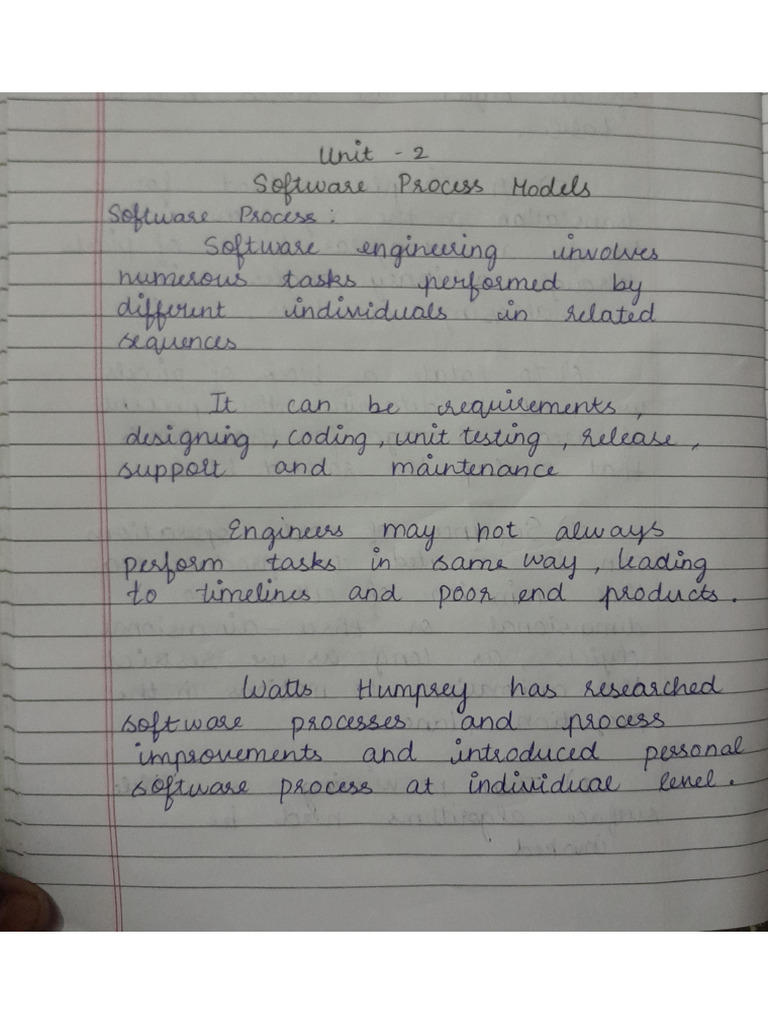 Unit - 2
Software Process Models
Software Process :
Software engineering involves
numerous tasks performed by
different individuals in related
sequences
It can be requirements,
designing, coding, unit testing, release,
support and maintenance
Engineers may not always
perform tasks in same way, leading
to timelines and poor end products.
Watts Humprey has researched
software processes and process
improvements and introduced personal
software process at individual level.